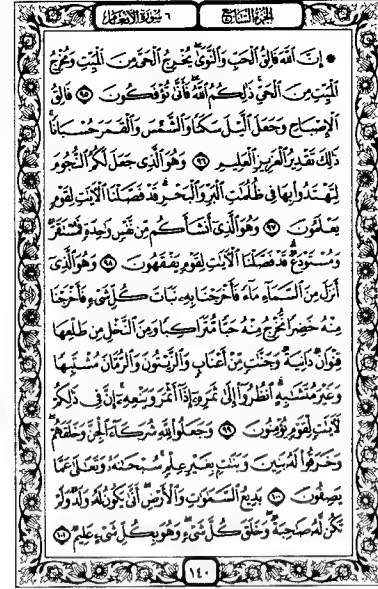 الجزء السابع
٦ سورة الأنعام
۞ إِنَّ ٱللَّهَ فَالِقُ ٱلْحَبِّ وَٱلنَّوَىٰ يُخْرِجُ ٱلْحَىَّ مِنَ ٱلْمَيِّتِ وَمُخْرِجُ
ٱلْمَيِّتِ مِنَ ٱلْحَىِّ ذَٰلِكُمُ ٱللَّهُ فَأَنَّىٰ تُؤْفَكُونَ ٩٥ فَالِقُ
ٱلْإِصْبَاحِ وَجَعَلَ ٱلَّيْلَ سَكَنًا وَٱلشَّمْسَ وَٱلْقَمَرَ حُسْبَانًا
ذَٰلِكَ تَقْدِيرُ ٱلْعَزِيزِ ٱلْعَلِيمِ ٩٦ وَهُوَ ٱلَّذِى جَعَلَ لَكُمُ ٱلنُّجُومَ
لِتَهْتَدُوا۟ بِهَا فِى ظُلُمَٰتِ ٱلْبَرِّ وَٱلْبَحْرِ قَدْ فَصَّلْنَا ٱلْءَايَٰتِ لِقَوْمٍ
يَعْلَمُونَ ٩٧ وَهُوَ ٱلَّذِىٓ أَنشَأَكُم مِّن نَّفْسٍ وَٰحِدَةٍ فَمُسْتَقَرٌّ
وَمُسْتَوْدَعٌ قَدْ فَصَّلْنَا ٱلْءَايَٰتِ لِقَوْمٍ يَفْقَهُونَ ٩٨ وَهُوَ ٱلَّذِىٓ
أَنزَلَ مِنَ ٱلسَّمَآءِ مَآءً فَأَخْرَجْنَا بِهِۦ نَبَاتَ كُلِّ شَىْءٍ فَأَخْرَجْنَا
مِنْهُ خَضِرًا نُّخْرِجُ مِنْهُ حَبًّا مُّتَرَاكِبًا وَمِنَ ٱلنَّخْلِ مِن طَلْعِهَا
قِنْوَانٌ دَانِيَةٌ وَجَنَّٰتٍ مِّنْ أَعْنَابٍ وَٱلزَّيْتُونَ وَٱلرُّمَّانَ مُشْتَبِهًا
وَغَيْرَ مُتَشَٰبِهٍ ٱنظُرُوٓا۟ إِلَىٰ ثَمَرِهِۦٓ إِذَآ أَثْمَرَ وَيَنْعِهِۦٓ إِنَّ فِى ذَٰلِكُمْ
لَءَايَٰتٍ لِّقَوْمٍ يُؤْمِنُونَ ٩٩ وَجَعَلُوا۟ لِلَّهِ شُرَكَآءَ ٱلْجِنَّ وَخَلَقَهُمْ
وَخَرَقُوا۟ لَهُۥ بَنِينَ وَبَنَٰتٍۭ بِغَيْرِ عِلْمٍ سُبْحَٰنَهُۥ وَتَعَٰلَىٰ عَمَّا
يَصِفُونَ ١٠٠ بَدِيعُ ٱلسَّمَٰوَٰتِ وَٱلْأَرْضِ أَنَّىٰ يَكُونُ لَهُۥ وَلَدٌ وَلَمْ
تَكُن لَّهُۥ صَٰحِبَةٌ وَخَلَقَ كُلَّ شَىْءٍ وَهُوَ بِكُلِّ شَىْءٍ عَلِيمٌ ١٠١
١٤٠